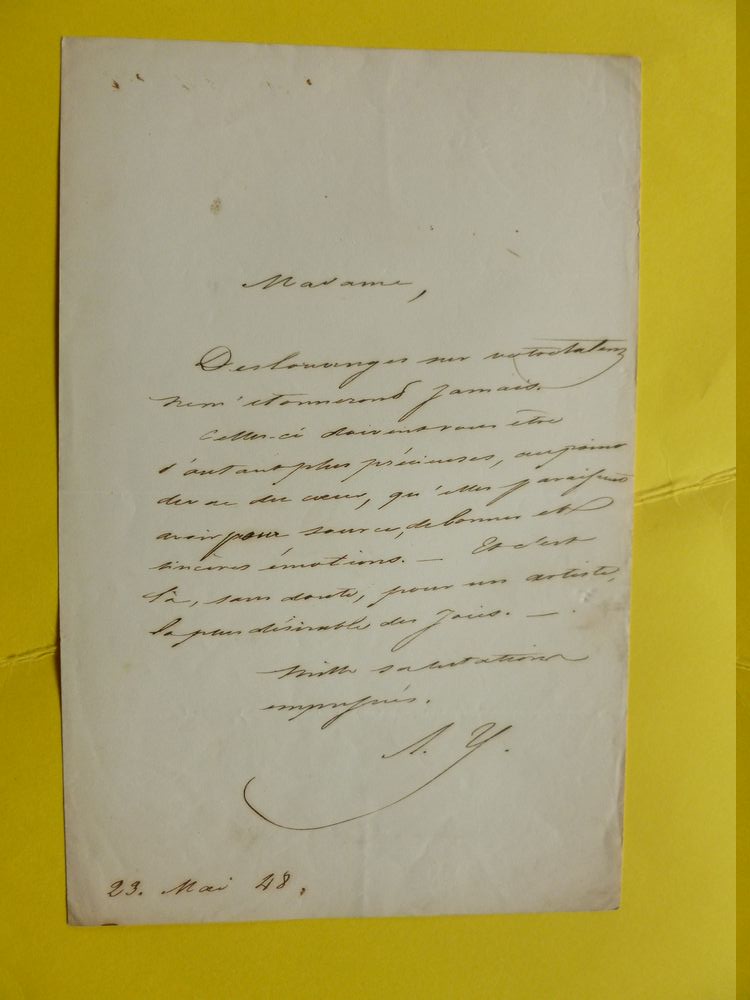 Madame,
Des louanges sur votre talent
ne m'étonneront jamais.
Celles-ci doivent vous être
d'autant plus précieuses, au point
de vue du cœur, qu'elles paraissent
avoir pour source, de bonnes et
sincères émotions. — Et c'est
là, sans doute, pour un artiste,
la plus désirable des joies. —
Mille salutations
empressées.
A. Y.
23. Mai 48.